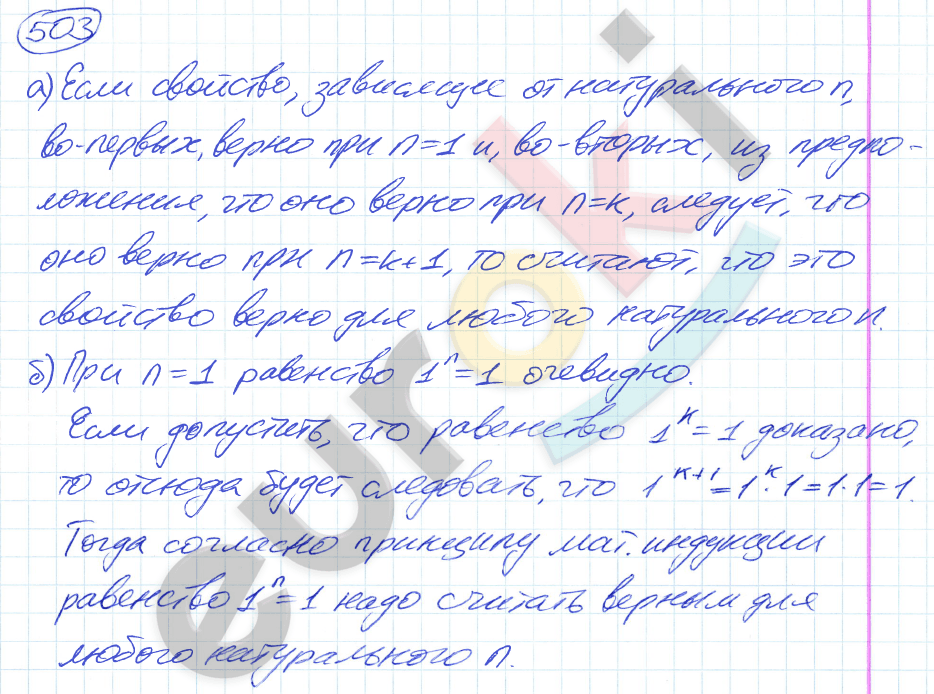 503
а) Если свойство, зависящее от натурального n,
во-первых, верно при n=1 и, во-вторых, из предпо-
ложения, что оно верно при n=k, следует, что
оно верно при n=k+1, то считают, что это
свойство верно для любого натурального n.
б) При n=1 равенство 1ⁿ=1 очевидно.
Если допустить, что равенство 1ᵏ=1 доказано,
то отсюда будет следовать, что 1ᵏ⁺¹=1ᵏ·1=1·1=1.
Тогда согласно принципу мат. индукции
равенство 1ⁿ=1 надо считать верным для
любого натурального n.
euroki